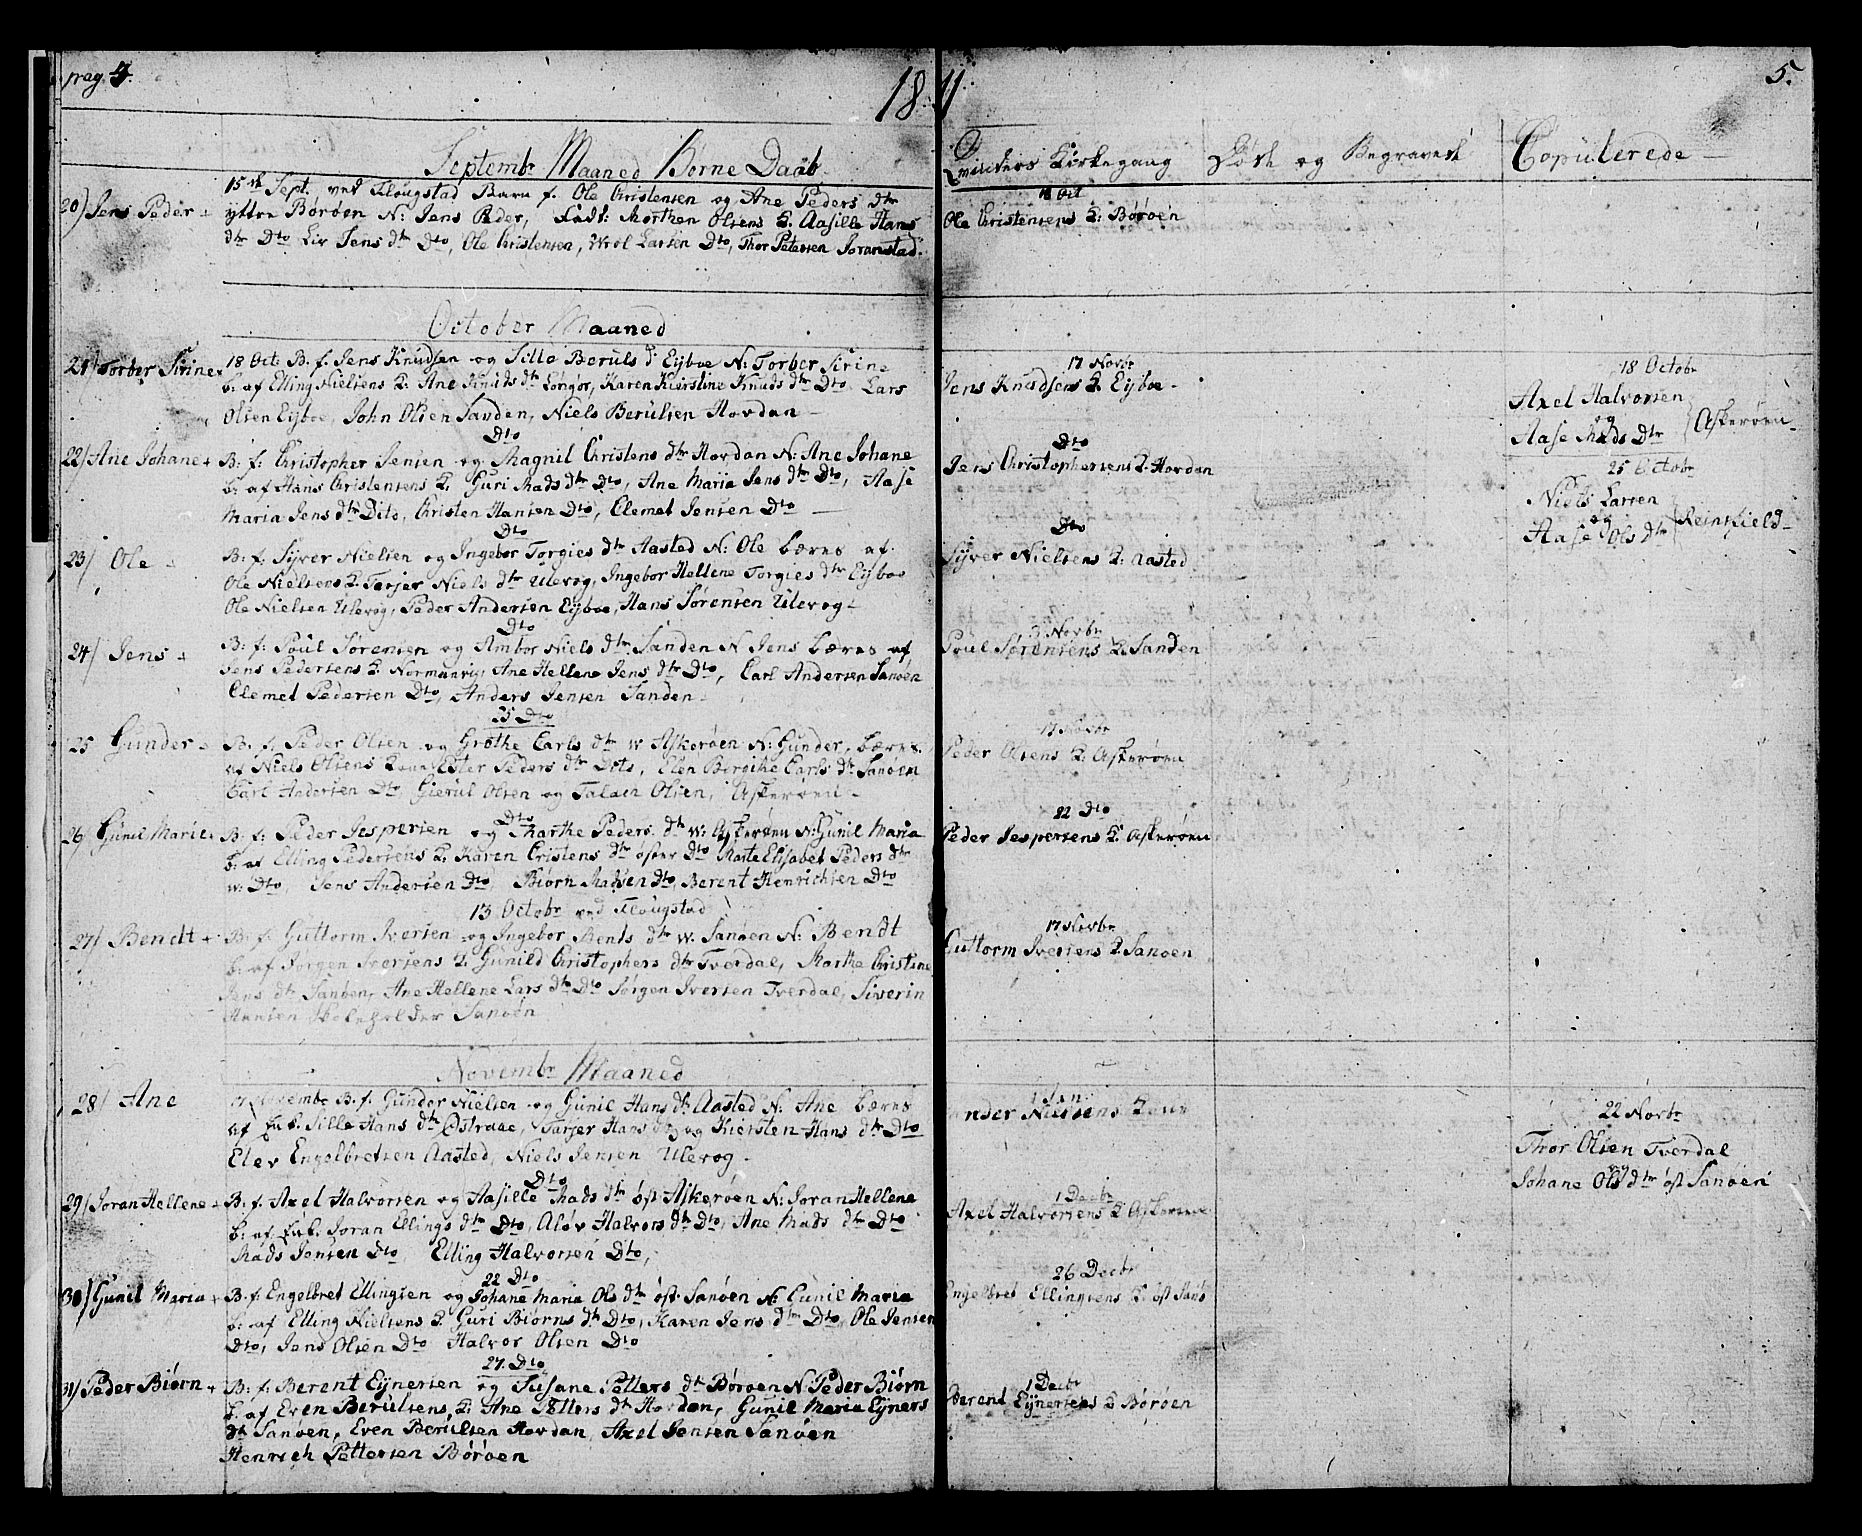 pag. 4.
18
Septembr Maaned Børne Daab
20) Jens Peder +
15de Sept. ved Flougstad Barn f. Ole Christensen og Ane Peders dtr
yttre Børøen N: Jens Peder, Fadt: Morthen Olsens K. Aasille Hans
dtr Dto Liv Jens dtr Dto, Ole Christensen, Wrol Larsen Dto, Thor Petersen Joranstad.
October Maaned
21) Torber Sirine +
18 Octr B. f. Jens Knudsen og Sille Beruls d. Eijboe N: Torber Sirine
b: af Elling Nielsens K: Ane Knuds dtr Longor, Karen Kierstine Knuds dtr Dto Lars
Olsen Eyboe, John Olsen Sanden, Niels Berulsen Hovdan
Dto
22) Ane Johane +
B: f: Christopher Jensen og Magnil Christens dtr Hovdan N: Ane Johane
b: af Hans Christensens K. Guri Mads dtr Dto, Ane Maria Jens dtr Dto, Aase
Maria Jens dtr Dito, Christen Hansen Dto, Clemet Jensen Dto
Dto
23) Ole
B: f: Syver Nielsen og Ingebor Torgies dtr Aasted N: Ole bæres af
Ole Nielsens K. Tarjer Niels dtr Ulevog, Ingebor Hellene Torgies dtr Eyboe
Ole Nielsen Ulevog, Peder Andersen Eyboe, Hans Sørensen Ulevog
Dto
24) Jens +
B: f: Poul Sørensen og Ambor Niels dtr Sanden N Jens bæres af
Jens Pedersens K Normanvig Ane Hellene Jens dtr Dto, Carl Andersen Sanøen
Clemet Pedersen Dto, Anders Jensen Sanden
25 Dto
25 Gunder
B. f. Peder Olsen og Grethe Carls dtr w Askerøen N: Gunder, bæres
af Niels Olsens Ester Peders dtr Dito, Elen Bergithe Carls dtr Sanøen
Carl Andersen Dto, Gierul Olsen og Talack Olsen, Askerøen
Dto
26) Gunil Marie +
B. f: Peder Jespersen og Marthe Peders dtr w: Askerøen N: Gunil Maria
b: af Elling Pedersens K: Karen Cristens dtr øster Dto Marte Elisabet Peders dtr
w: Dto, Jens Andersen Dto, Biørn Madsen Dto, Berent Henrichsen Dto
13 Octobr ved Flougstad
27) Bendt +
B. f. Guttorm Iversen og Ingebor Bents dtr w. Sanøen N: Bendt
b: af Jorgen Iversens K. Gunild Christophers dtr Tverdal, Marthe Christine
Jens dtr Sanøen, Ane Hellene Lars dtr Dto Jørgen Iversen Tverdal, Siverin
Hansen Skoleholder Sanøen
Novembr Maaned
28) Ane
17 Novembr B. f. Gunder Nielsen og Gunil Hans dtr Aasted N: Ane bæres
af Enk. Sille Hans dtr Østraae, Tarjer Hans dtr og Kiersten Hans dtr Dto
Elev Engelbretsen Aasted, Niels Jensen Ulevog
Dto
29) Joran Hellene +
B. f. Axel Halvorsen og Aasille Mads dtr øst Askerøen N: Joran Hellene
b: af Enk. Joran Ellings dtr Dto, Aløv Halvors dtr Dto, Ane Mads dtr Dto
Mads Jensen Dto Elling Halvorsen Dto,
22 Dto
30) Gunil Maria +
B. f. Engelbret Ellingsen og Johane Maria Ols dtr øst Sanøen N: Gunil Maria
b: af Elling Nielsens K. Guri Biørns dtr Dto, Karen Jens dtr Dto, Ole Jensen
Dto, Jens Olsen Dto Halvor Olsen Dto
27. Dto
31) Peder Biørn +
B: f: Berent Eynersen og Susane Petters dtr Børøen N: Peder Biørn
b. af Even Berulsens K: Ane Petters dtr Hovdan, Gunil Maria Eyners
dtr Sanøen, Even Berulsen Hovdan, Axel Jensen Sanøen
Henrich Pettersen Børøen
11
5.
Qvinders Kirkegang
Døde og Begravede
Copulerede
18 Oct
Ole Christensens K: Børøen
17 Novbr
Jens Knudsens K Eijboe
Dto
Jens Christophersens K. Hovdan
Dto
Syver Nielsens K. Aasted
3 Novbr
Poul Sørensens K Sanden
17 Novbr
Peder Olsens K: Askerøen
22 Dto
Peder Jespersens K. Askerøen
17 Novbr
Guttorm Iversens K Sanøen
1 Jan
Gunder Nielsens
1 Decbr
Axel Halvorsens K Askerøen
26 Decbr
Engelbret Ellingsens K. øst Sanø
1 Decbr
Berend Eynersens K Børøen
18 Octobr
Axel Halvorsen
og
Aase Mads Dtr
Askerøen
25 Octobr
Niels Larsen
og
Aase Ols dtr
Reinsfield
22 Novbr
Thor Olsen Tverdal
og
Johane Ols dtr øst Sanøen